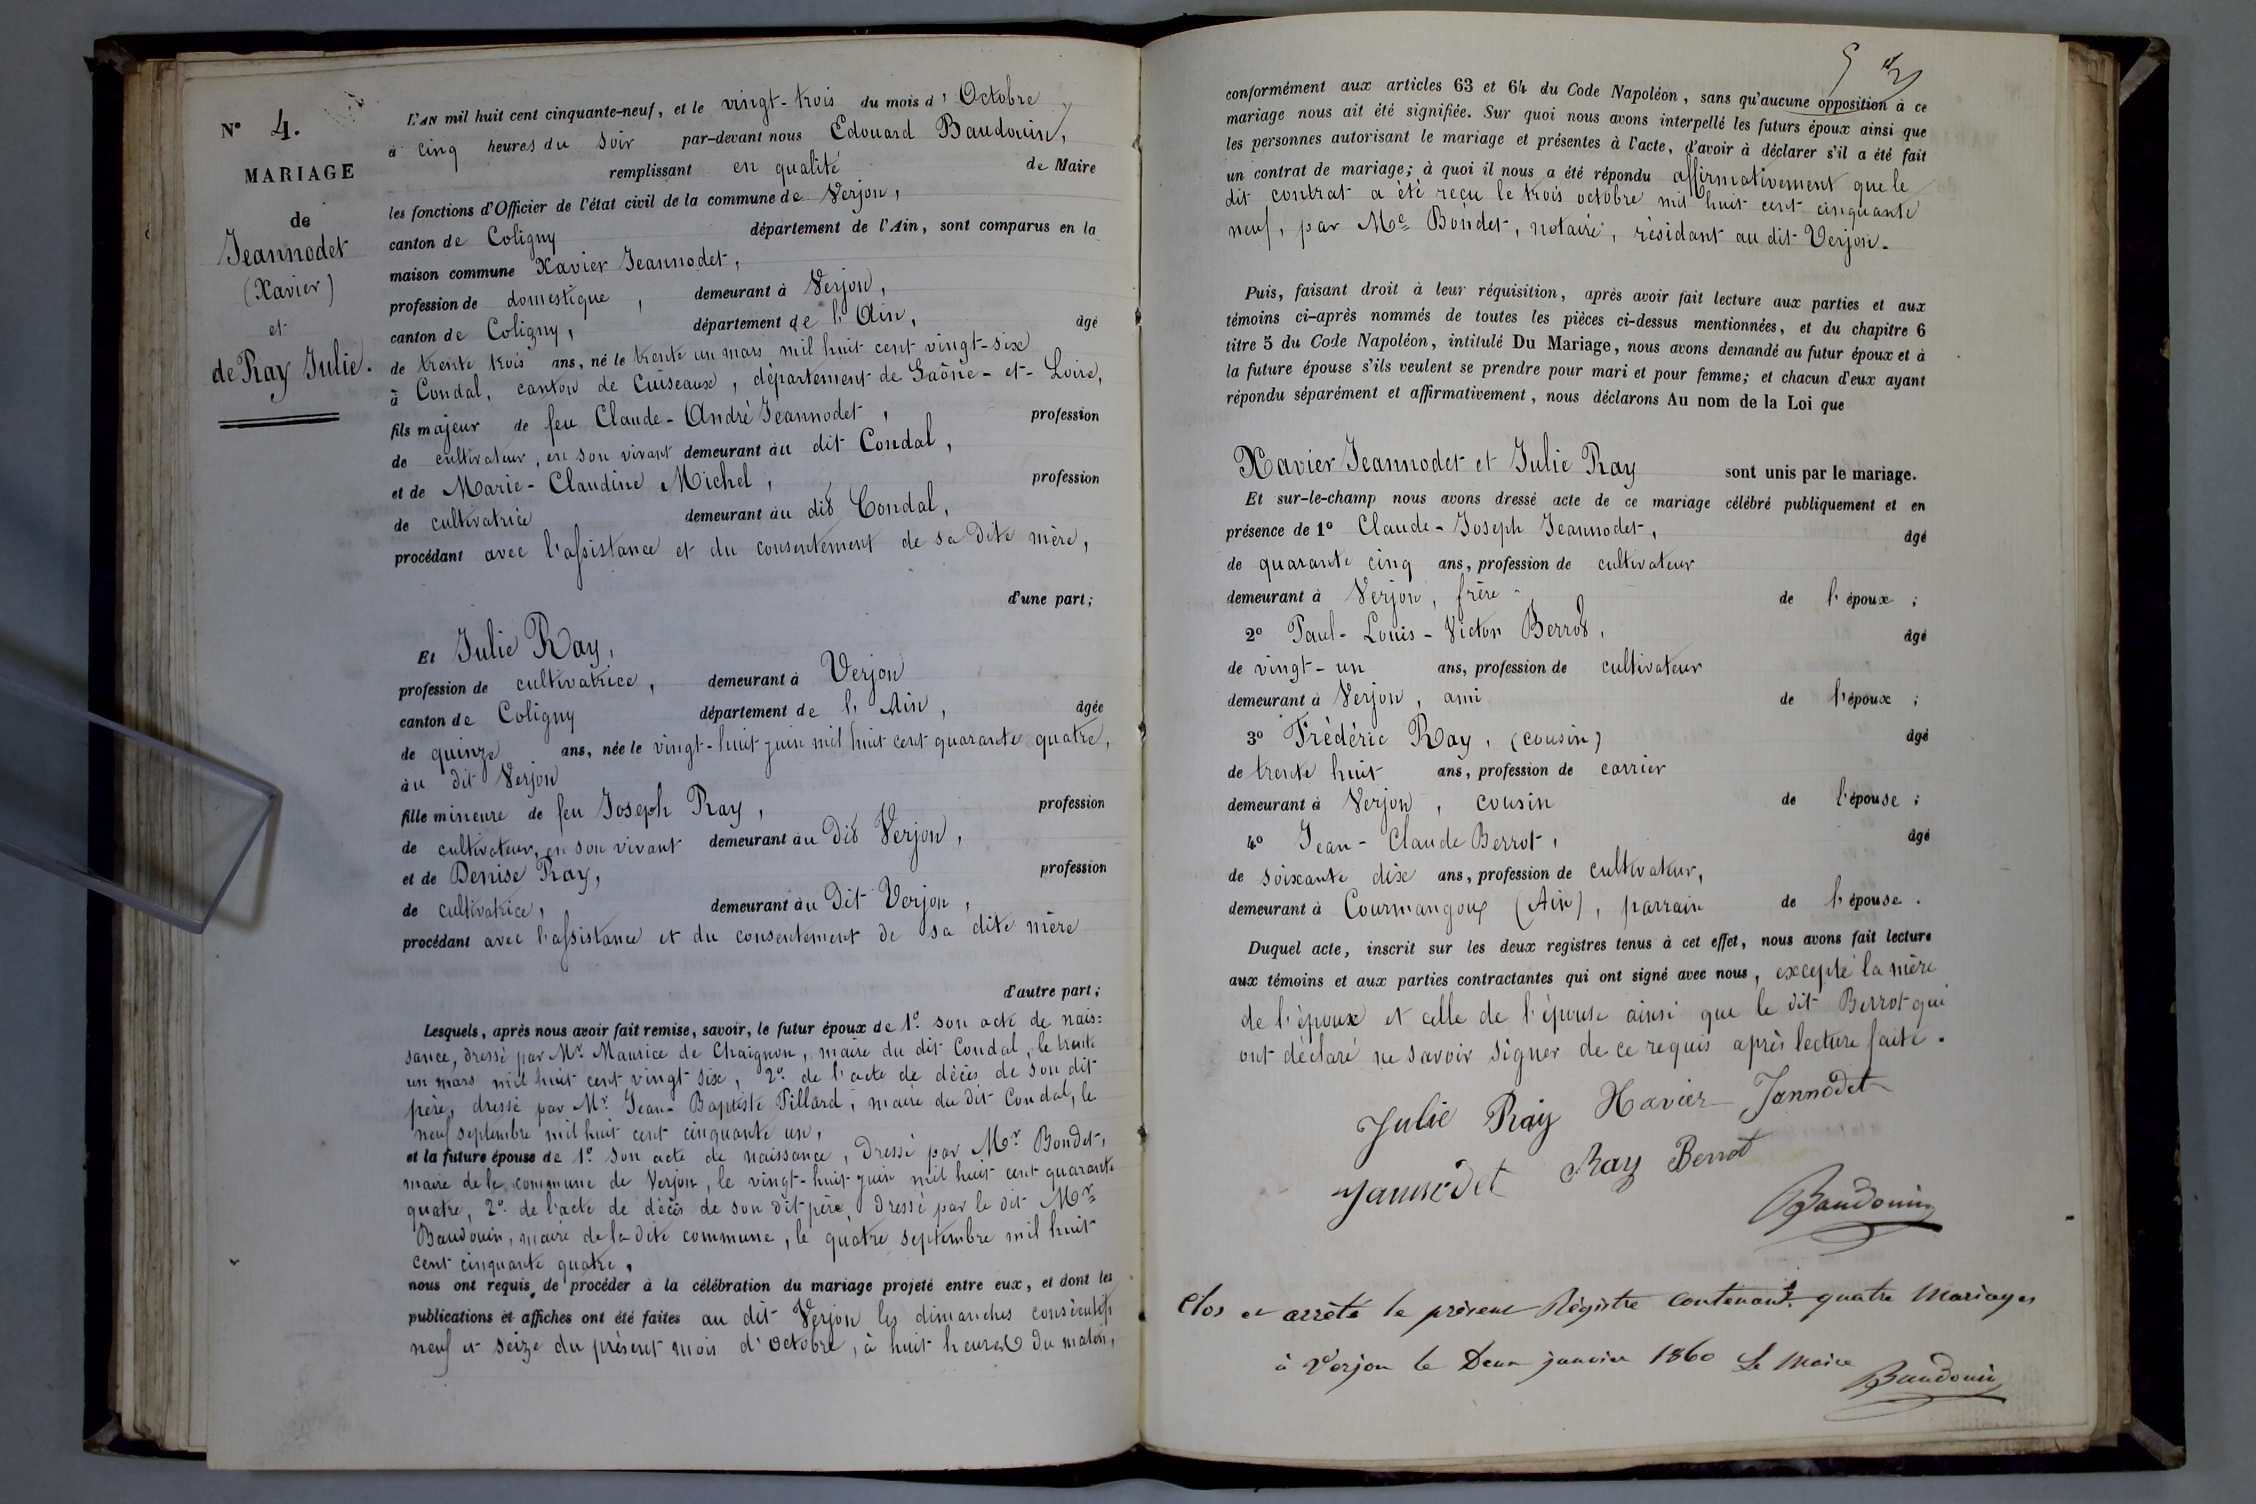 N° 4.
MARIAGE
de
Jeannodet
(Xavier)
et
de Ray Julie.
L'AN mil huit cent cinquante-neuf, et le vingt-trois du mois d'Octobre
à cinq heures du soir par-devant nous Edouard Baudouin,
remplissant en qualité de Maire
les fonctions d'Officier de l'état civil de la commune de Verjon,
canton de Coligny département de l'Ain, sont comparus en la
maison commune Xavier Jeannodet,
profession de domestique, demeurant à Verjon,
canton de Coligny, département de l'Ain, âgé
de trente trois ans, né le trente un mars mil huit cent vingt-six
à Condal, canton de Cuiseaux, département de Saône-et-Loire,
fils majeur de feu Claude-André Jeannodet, profession
de cultivateur, en son vivant demeurant àu dit Condal,
et de Marie-Claudine Michel, profession
de cultivatrice demeurant àu dit Condal,
procédant avec l'assistance et du consentement de sa dite mère,
d'une part;
Et Julie Ray,
profession de cultivatrice, demeurant à Verjon
canton de Coligny département de l'Ain, âgée
de quinze ans, née le vingt-huit juin mil huit cent quarante quatre,
àu dit Verjon
fille mineure de feu Joseph Ray, profession
de cultivateur, en son vivant demeurant àu dit Verjon,
et de Denise Ray, profession
de cultivatrice, demeurant àu dit Verjon,
procédant avec l'assistance et du consentement de sa dite mère
d'autre part;
Lesquels, après nous avoir fait remise, savoir, le futur époux de 1° son acte de nais=
sance, dressé par Mr. Maurice de Chaignon, maire du dit Condal, le trente
un mars mil huit cent vingt six, 2° de l'acte de décès de son dit
père, dressé par Mr Jean-Baptiste Pillard, maire du dit Condal, le
neuf septembre mil huit cent cinquante un,
et la future épouse de 1° son acte de naissance, dressé par Mr Bondet,
maire de la commune de Verjon, le vingt-huit juin mil huit cent quarante
quatre, 2° de l'acte de décès de son dit père, dressé par le dit Mr
Baudouin, maire de la dite commune, le quatre septembre mil huit
cent cinquante quatre,
nous ont requis de procéder à la célébration du mariage projeté entre eux, et dont les
publications et affiches ont été faites au dit Verjon les dimanches consécutifs
neuf et seize du présent mois d'octobre, à huit heures du matin,
conformément aux articles 63 et 64 du Code Napoléon, sans qu'aucune opposition à ce
mariage nous ait été signifiée. Sur quoi nous avons interpellé les futurs époux ainsi que
les personnes autorisant le mariage et présentes à l'acte, d'avoir à déclarer s'il a été fait
un contrat de mariage; à quoi il nous a été répondu affirmativement que le
dit contrat a été reçu le trois octobre mil huit cent cinquante
neuf, par Me Bondet, notaire, résidant au dit Verjon.
Puis, faisant droit à leur réquisition, après avoir fait lecture aux parties et aux
témoins ci-après nommés de toutes les pièces ci-dessus mentionnées, et du chapitre 6
titre 5 du Code Napoléon, intitulé Du Mariage, nous avons demandé au futur époux et à
la future épouse s'ils veulent se prendre pour mari et pour femme; et chacun d'eux ayant
répondu séparément et affirmativement, nous déclarons Au nom de la Loi que
Xavier Jeannodet et Julie Ray sont unis par le mariage.
Et sur-le-champ nous avons dressé acte de ce mariage célébré publiquement et en
présence de 1° Claude-Joseph Jeannodet, âgé
de quarante cinq ans, profession de cultivateur
demeurant à Verjon, frère de l'époux;
2° Paul-Louis-Victor Berrot, âgé
de vingt-un ans, profession de cultivateur
demeurant à Verjon, ami de l'époux;
3° Frédéric Ray, (cousin) âgé
de trente huit ans, profession de carrier
demeurant à Verjon, cousin de l'épouse;
4° Jean-Claude Berrot, âgé
de soixante dix ans, profession de cultivateur,
demeurant à Courmangoux (Ain), parrain de l'épouse.
Duquel acte, inscrit sur les deux registres tenus à cet effet, nous avons fait lecture
aux témoins et aux parties contractantes qui ont signé avec nous, excepté la mère
de l'époux et celle de l'épouse ainsi que le dit Berrot qui
ont déclaré ne savoir signer de ce requis après lecture faite.
Julie Ray Xavier Jannodet
Jannodet Ray Berrot
Baudouin
Clos et arrêté le présent Régistre contenant quatre Mariages
à Verjon le Deux janvier 1860 Le Maire
Baudouin